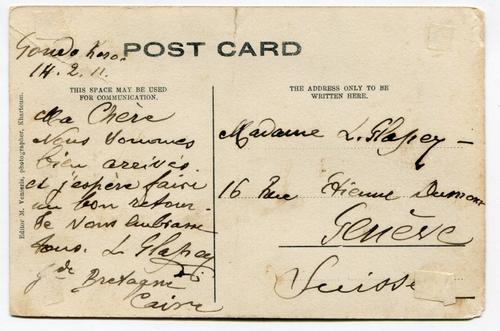 14.2.11.
POST CARD
THIS SPACE MAY BE USED
FOR COMMUNICATION.
THE ADDRESS ONLY TO BE
WRITTEN HERE.
Editor M. Venieris, photographer, Khartoum.
Ma Chère
Nous sommes
bien arrivés.
et j'espère faire
un bon retour.
Je vous embrasse
tous. L. Glapey
Gde Bretagne
Caire
Madame L. Glapey
16 Rue Etienne Dumont
Genève
Suisse